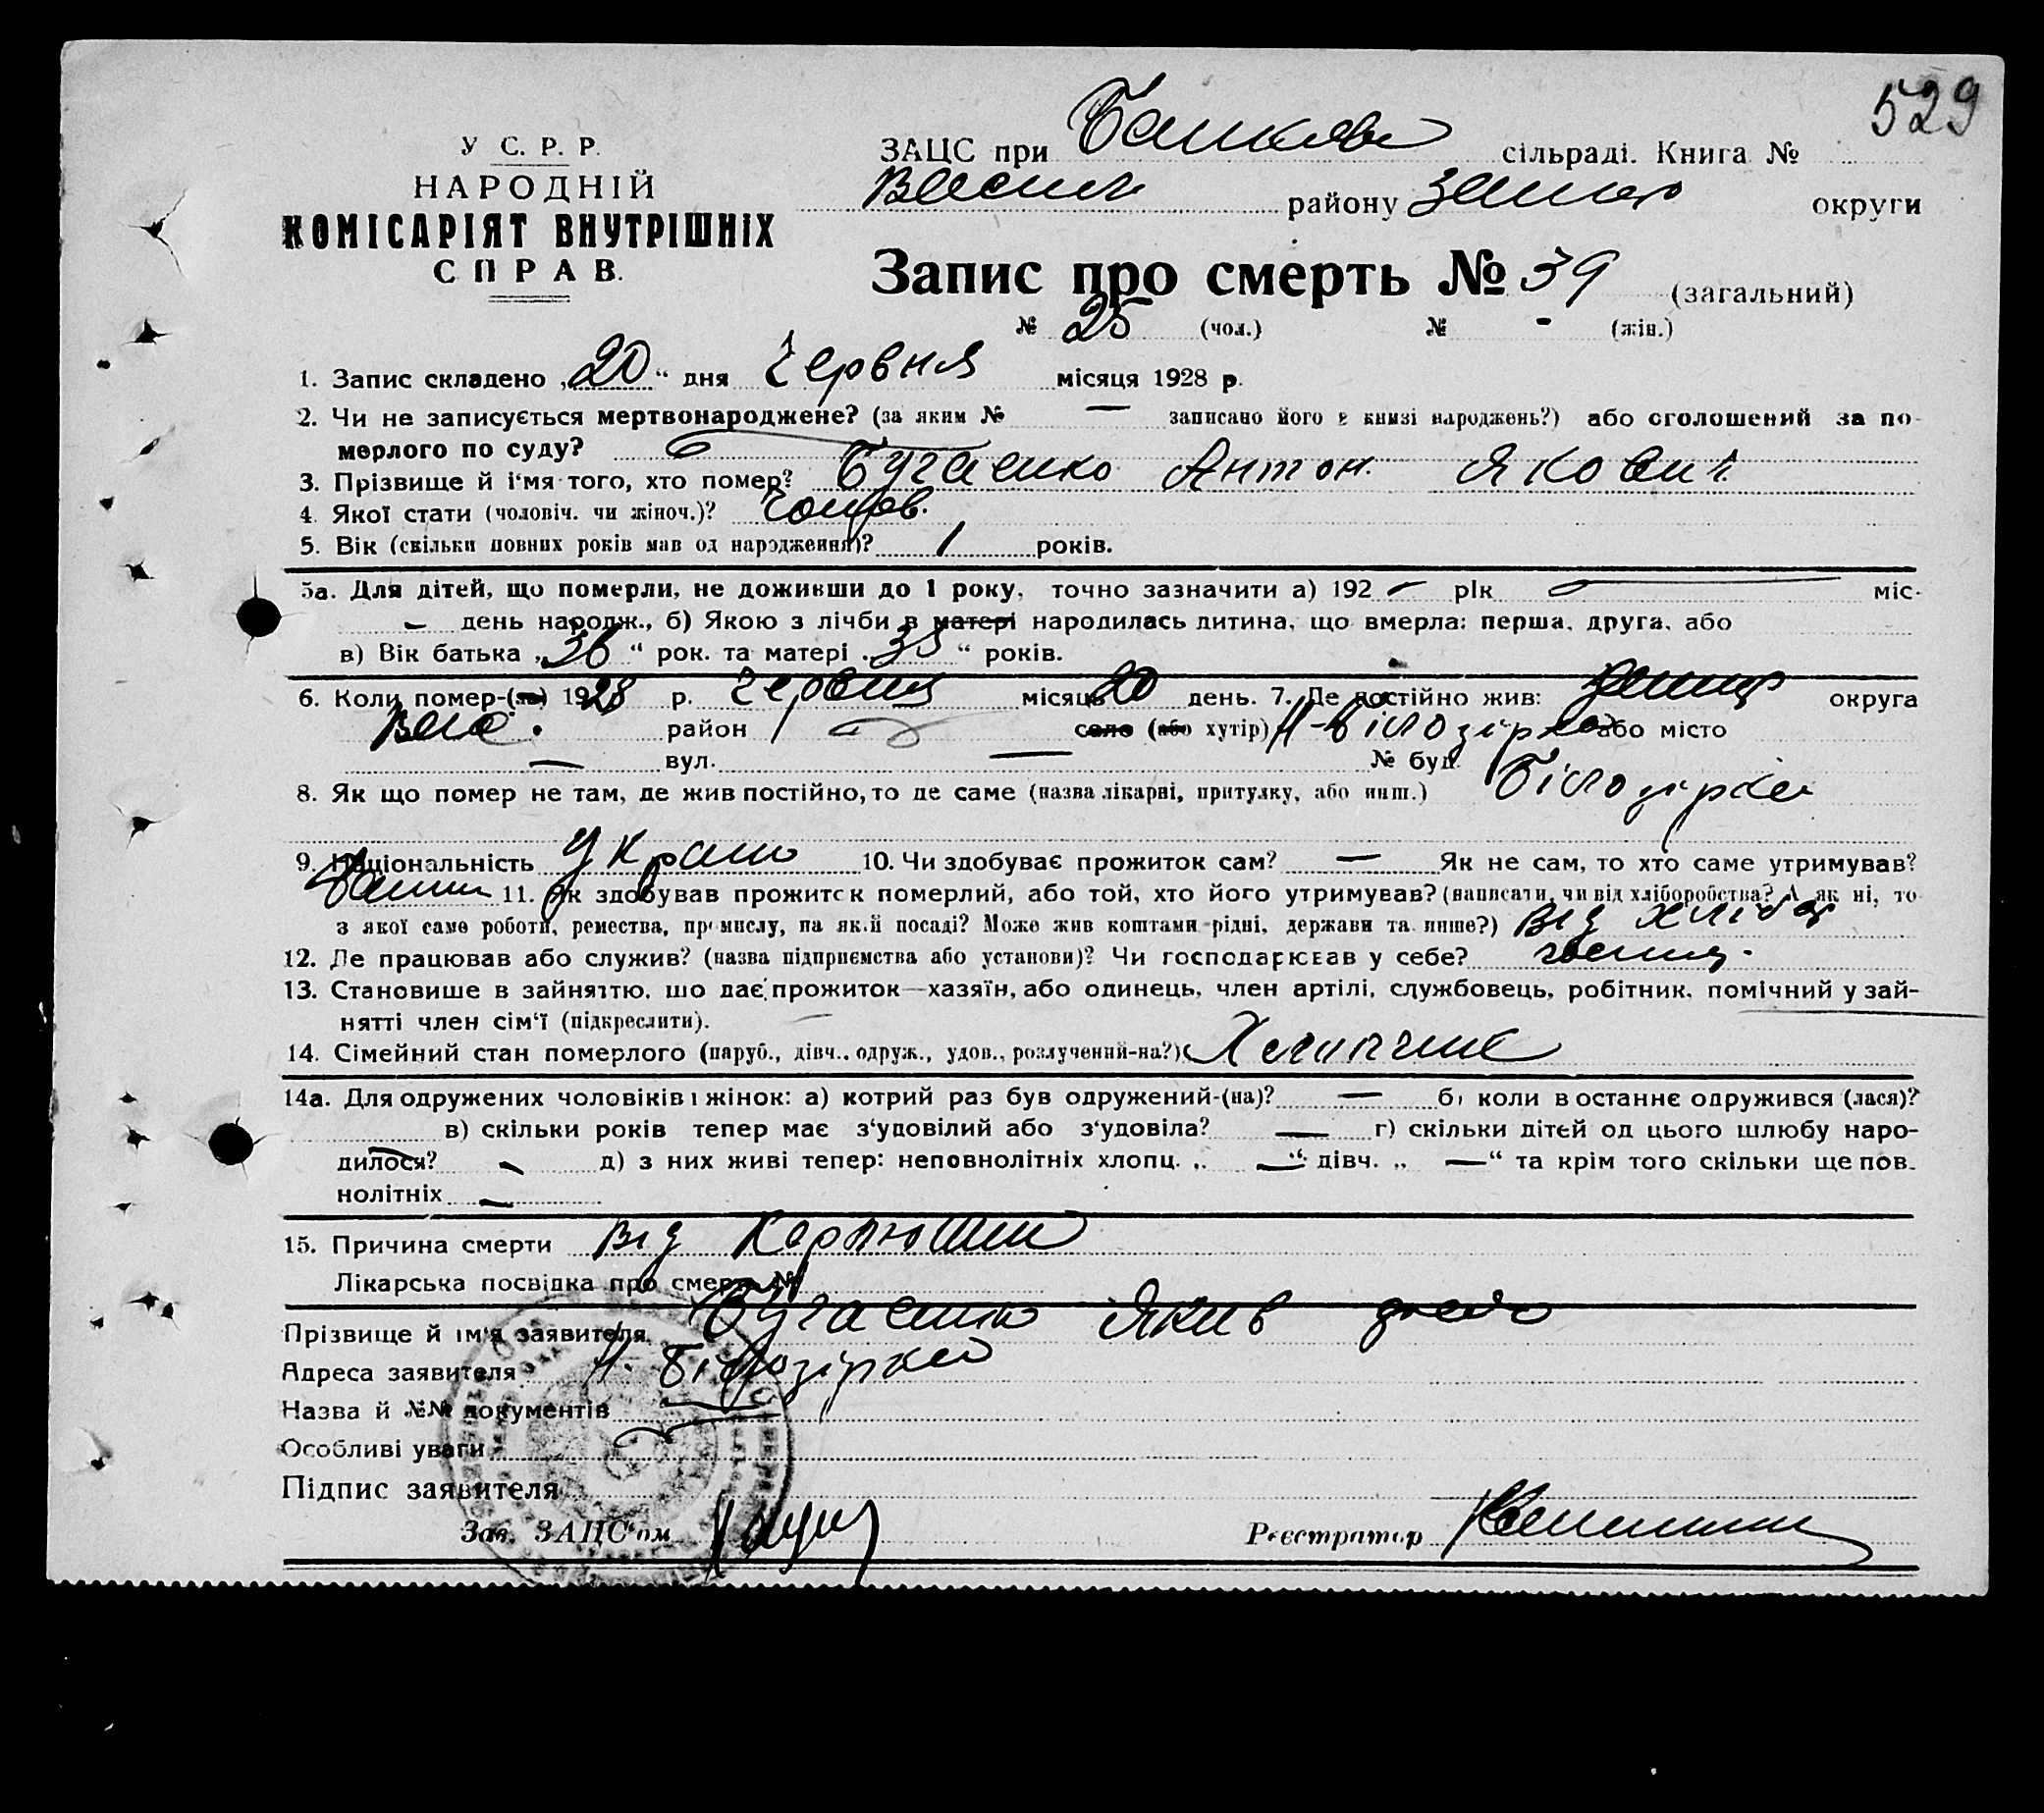 529
У С. Р. Р.
НАРОДНІЙ
КОМІСАРІЯТ ВНУТРІШНІХ
СПРАВ.
ЗАЦС при сільраді. Книга №
району округи
Запис про смерть № 39 (загальний)
№ 25 (чол.) № - (жін.)
1. Запис складено „20“ дня Червня місяця 1928 р.
2. Чи не записується мертвонароджене? (за яким № — записано його в книзі народжень?) або оголошений за по-
мерлого по суду?
3. Прізвище й і'мя того, хто помер? Бугаенко Антон. Якович
4. Якої стати (чоловіч. чи жіноч.)? чолов.
5. Вік (скільки повних років мав од народження)? 1 років.
5а. Для дітей, що померли, не доживши до 1 року, точно зазначити а) 192 – рік — міс.
– день народж., б) Якою з лічби в матері народилась дитина, що вмерла: перша, друга, або
в) Вік батька „36“ рок. та матері „35“ років.
6. Коли помер-(ла) 1928 р. червня місяць 20 день. 7. Де постійно жив: округа
район село (або хутір) Н-Білозірка або місто
— вул. — № буд.
8. Як що помер не там, де жив постійно, то де саме (назва лікарні, притулку, або инш.) Білозірка
9. Національність Украін 10. Чи здобуває прожиток сам? — Як не сам, то хто саме утримував?
11. Як здобував прожиток померлий, або той, хто його утримував? (написати, чи від хліборобства? А як ні, то
з якої саме роботи, ремества, промислу, на якій посаді? Може жив коштами рідні, держави та инше?) Від хліба
12. Де працював або служив? (назва підприємства або установи)? Чи господарював у себе?
13. Становище в зайняттю, що дає прожиток—хазяїн, або одинець, член артілі, службовець, робітник, помічний у зай-
нятті член сім'ї (підкреслити).
14. Сімейний стан померлого (паруб., дівч., одруж., удов., розлучений-на?) Хлопчик
14а. Для одружених чоловіків і жінок: а) котрий раз був одружений-(на)? — б) коли в останнє одружився (лася)?
в) скільки років тепер має з'удовілий або з'удовіла? — г) скільки дітей од цього шлюбу наро-
дилося? – д) з них живі тепер: неповнолітніх хлопц. „—“ дівч. „—“ та крім того скільки ще пов-
нолітніх —
15. Причина смерти від
Лікарська посвідка про смерть №
Прізвище й ім'я заявителя Бугаенко Яків
Адреса заявителя Н. Білозірка
Назва й №№ документів
Особливі уваги
Підпис заявителя
Зав. ЗАЦС'ом Реєстратор